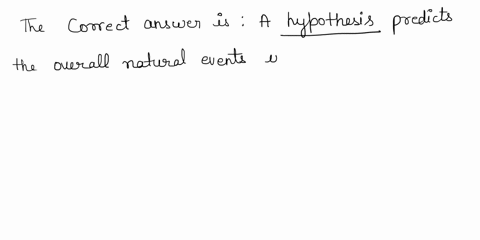 The Correct answer is : A hypothesis predicts
the overall natural events